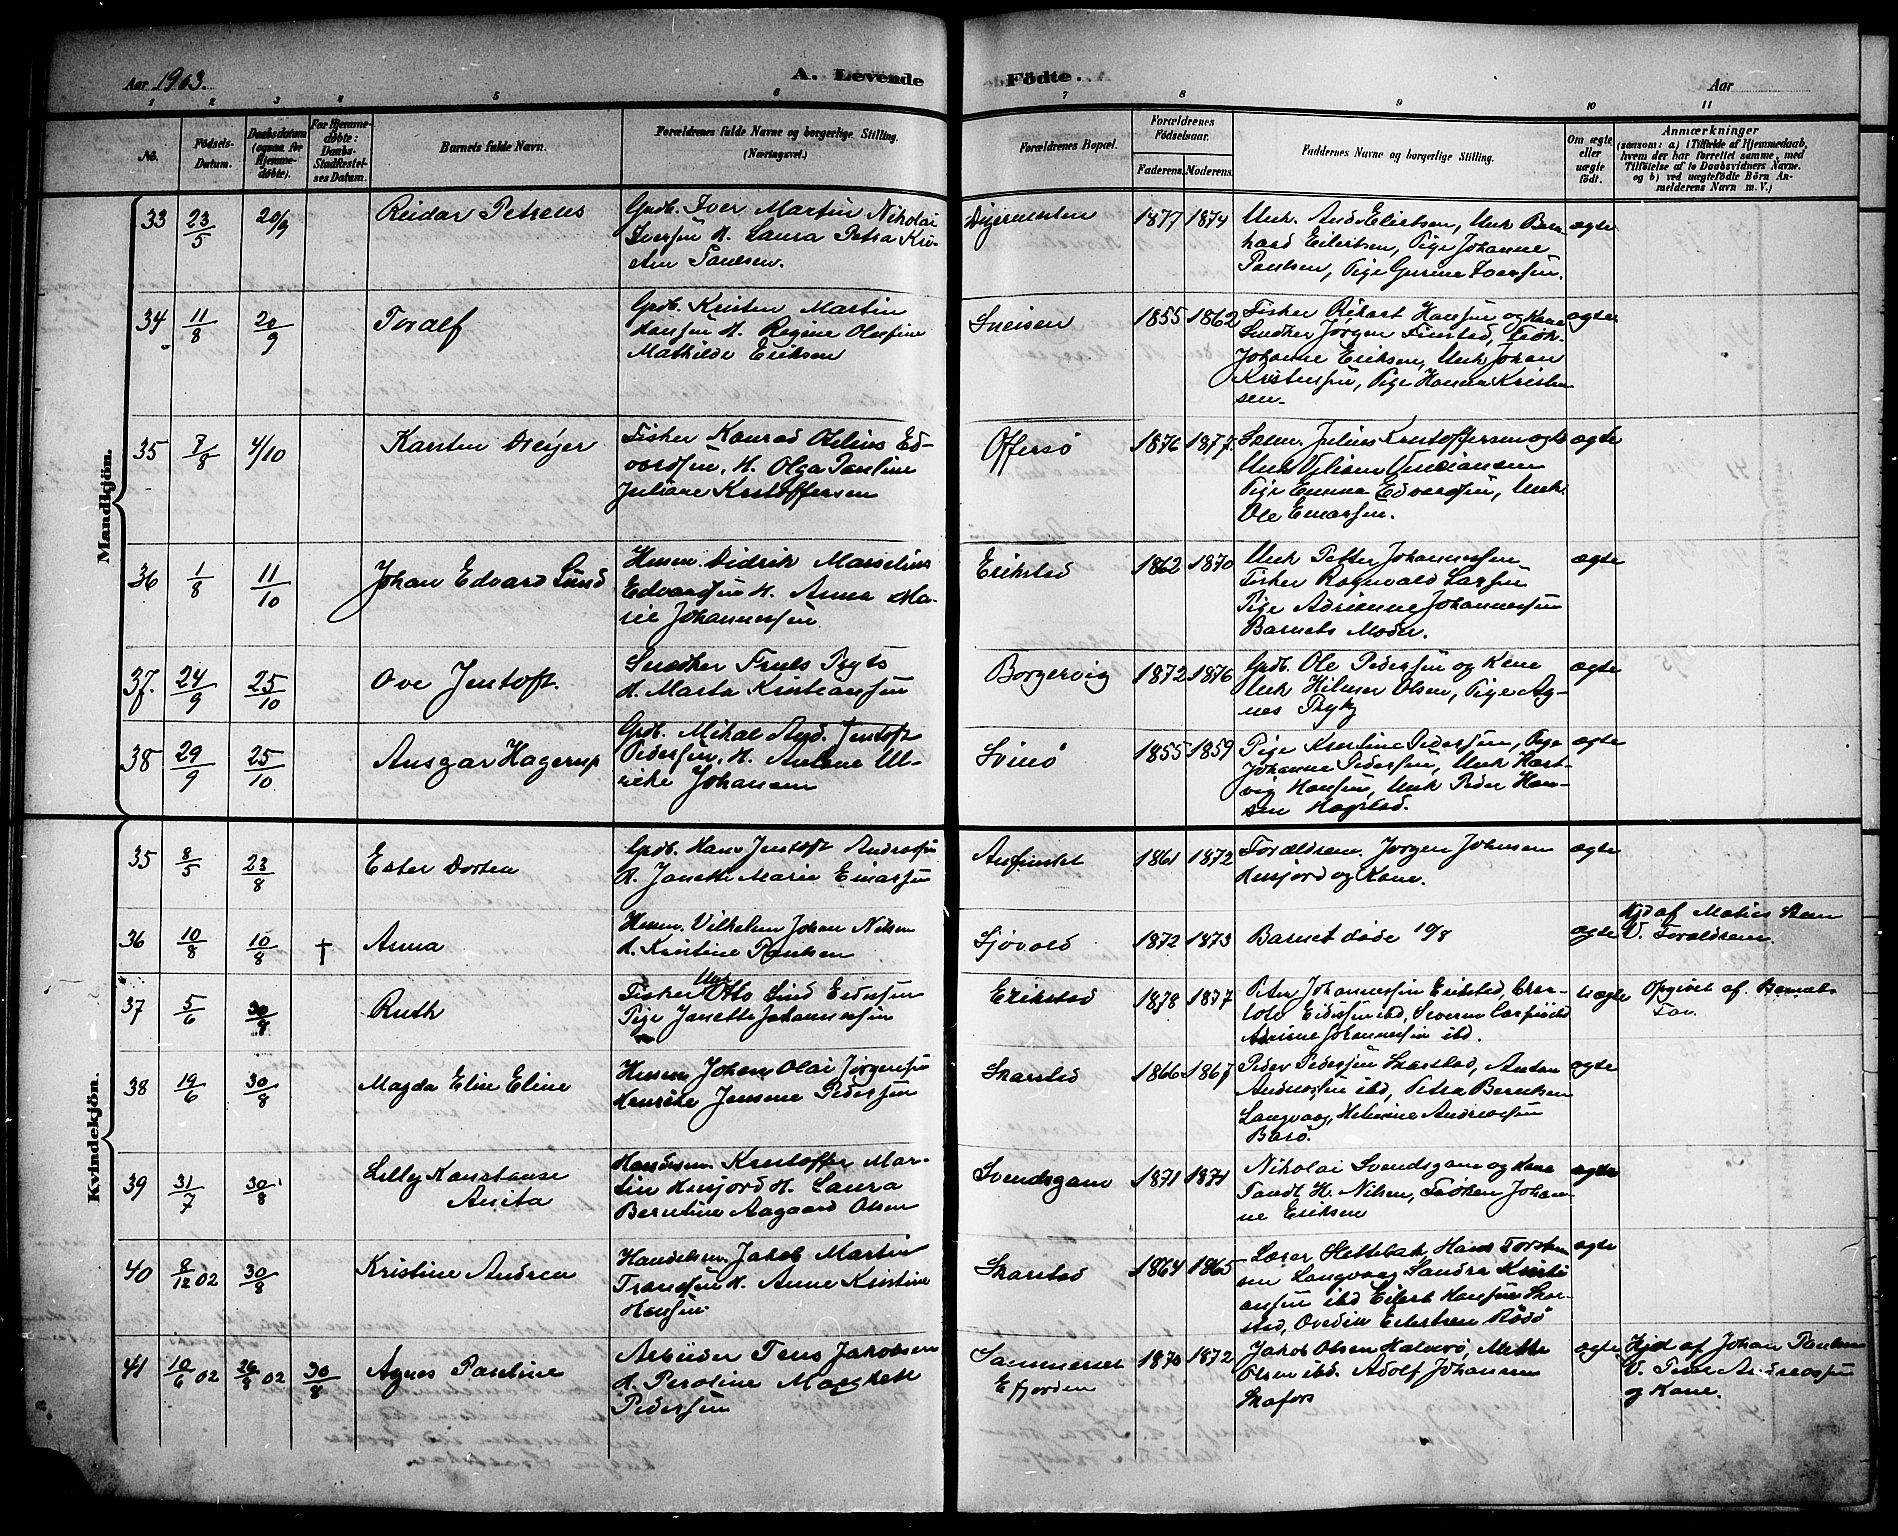 Aar 1903.
A. Levende
Födte.
Aar
1 2 3 4 5 6 7 8 9 10 11
No.
Födsels-Datum.
Daabsdatum (ogsaa for Hjemme-döbte).
For Hjemme-döbte: Daabs-Stadfæstel-ses Datum.
Barnets fulde Navn.
Forældrenes fulde Navne og borgerlige Stilling. (Næringsvei.)
Forældrenes Bopæl.
Forældrenes Födselsaar.
Faderens. Moderens.
Faddernes Navne og borgerlige Stilling.
Om ægte eller uægte födt.
Anmærkninger
(saasom: a) i Tilfælde af Hjemmedaab,
hvem der har forrettet samme, med
Tilföielse af to Daabsvidners Navne.
og b) ved uægtefödte Börn An-
melderens Navn m. V.)
Mandkjön.
33 23/5 20/9 Reidar Petreus
Grdb. Iver Martin Nikolai
Iversen H. Laura Petra Kri-
stin Paulsen.
1877 1874
Unk. And. Eilertsen, Unk Bern
hard Eilertsen, Pige Johanne
Paulsen, Pige Gurine Iversen.
ægte
34 11/8 20/9 Toralf
Grdb. Kristen Martin
Hansen H. Regine Olufine
Mathilde Eriksen
Sneisen
1855 1862
Fisker Rikart Hansen og Kone
Snedker Jørgen Finstad, Frøk-
Johanne Eriksen, Unk Johan
Kristensen, Pige Hanna Kristen
sen.
ægte
35 7/8 4/10 Karsten Meyer
Fisker Konrad Otelius Ed-
vardsen, H. Olga Pauline
Juliane Kristoffersen
Offersø
1876 1877.
Julius Kristoffersen
Pige Emma Edvardsen, Unk.
Ole Einarsen.
ægte
36 1/8 11/10 Johan Edvard Lund
Husm. Didrik Marselius
Edvardsen H. Anna Ma-
rie Johannessen
Erikstad
1862 1870
Unk Petter Johannessen
Fisker Ragnvald Larsen
Pige Adrianne Johannessen
Barnets Moder.
ægte
37. 24/9 25/10 Ove Jentoft.
Snedker Truls Prytz
H. Marta Kristiansen
Borgervig
1872 1876
Grdb. Ole Pedersen og Kone
Unk Hilmer Olsen, Pige Ag-
nes Prytz
ægte
38 29/9 25/10 Ansgar Hagerup
Grdb. Mikal And. Jentoft
Pedersen, H. Antone Ul-
rikke Johansen
Svinø
1855 1859
Pige Kristine Pedersen, Pige
Johanne Pedersen, Unk Hart-
vig Hansen, Unk Peder Han-
sen Hagstad.
ægte
Kvindekjön.
35 8/5 23/8 Ester Dortea
Grdb. Hans Jentoft Andreasen
H. Janette Marie Einarsen
1861 1872
Forældrene. Jørgen Johnsen
Husjord og Kone.
ægte
36 10/8 10/8 † Anna
Husm. Vilhelm Johan Nilsen
H. Kristine Paulsen
Sjøvold
1872 1873
Barnet døde 10/8
ægte
Hjd af Matias
V. Forældrene.
37 5/6 30/8 Ruth
Fisker Unk Otto Lind Eidissen
Pige Janette Johannessen
Erikstad
1878 1877
Peter Johannessen Erikstad,
Eidissen ibd, Severin
Adrine Johannessen ibd.
uægte
Opgivet af Barnets
Far.
38 19/6 30/8 Magda Elise Eline
Husm Johan Olai Jørgensen
Henrikke Jensine Pedersen
Skarstad
1866 1867
Peder Pedersen Skarstad, Anton
Andreassen ibd, Petra Berntsen
Langvaag, Helmine Andreassen
Barø.
ægte
39 31/7 30/8 Lilly Konstanse
Anita
Handelsm. Kristoffer Mar-
tin Husjord H. Laura
Berntine Aagaard Olsen
Svendsgam
1871 1871
Nikolai Svendsgam og Kone
H. Nilsen, Frøken Johan-
ne Eriksen
ægte
40 8/12 02 30/8 Kristine Andrea
Handelsm. Jakob Martin
Transen H. Anne Kristine
Hansen.
Skarstad
1864 1865
Lærer Slettebak, Hans Torsten
sen Langvaag Sandra Kristi
ansen ibd Eilert Hansen Skar-
stad, Ovedia Eilertsen Rödø
ægte
41 10/6 02 26/8 02 30/8 Agnes Pauline
Arbeider Jens Jakobsen
H. Peroline Margrete
Pedersen
Sommerset
Efjorden
1870 1872
Jakob Olsen Halvarø, Mette
Olsen ibd. Adolf Johansen
Skafors
ægte
Hjd af Johan Paulsen
V. Peter Andreassen
og Kone.